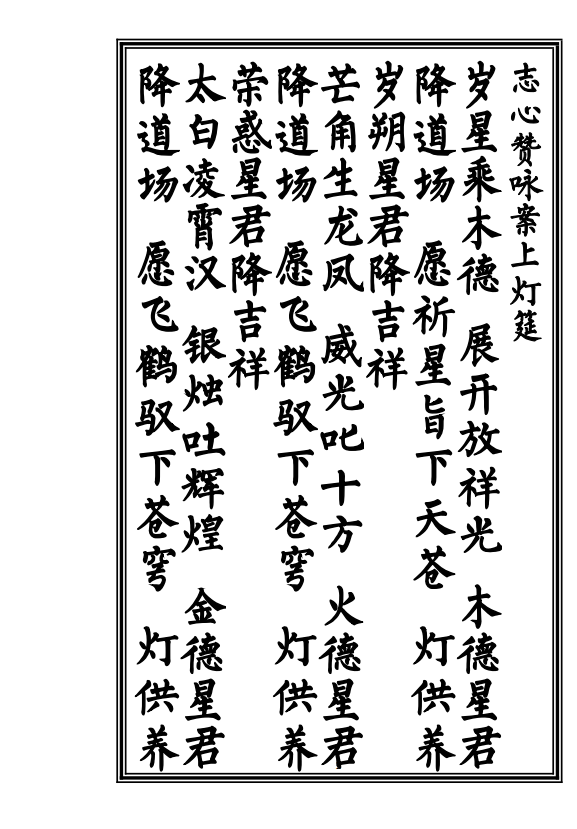 志心赞咏案上灯筵
岁星乘木德 展开放祥光 木德星君
降道场 愿祈星旨下天苍 灯供养
岁朔星君降吉祥
芒角生龙凤 威光叱十方 火德星君
降道场 愿飞鹤驭下苍穹 灯供养
荣惑星君降吉祥
太白凌霄汉 银烛吐辉煌 金德星君
降道场 愿飞鹤驭下苍穹 灯供养